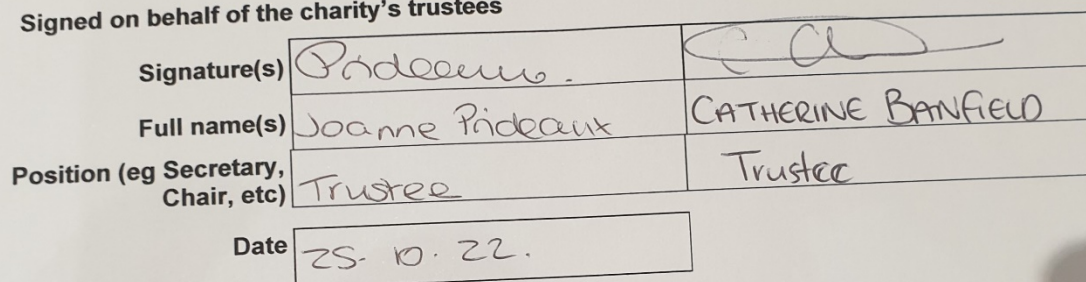 Signed on behalf of the charity's trustees
Signature(s) Prideaux.
Full name(s) Joanne Prideaux CATHERINE BANFIELD
Position (eg Secretary,
Chair, etc) Trustee Trustee
Date 25. 10. 22.